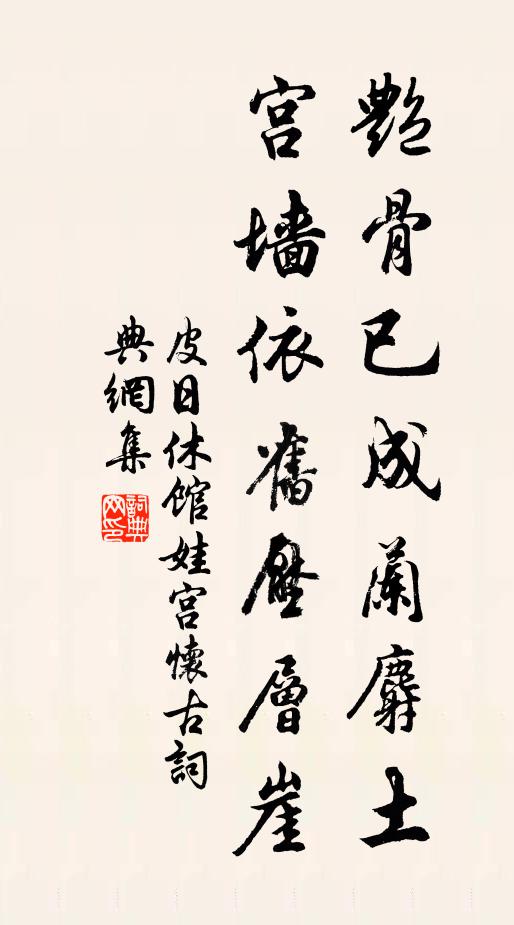 艷骨已成蘭麝土
宮墻依舊壓層崖
皮日休館娃宮懷古詞
典網集
詞典網印